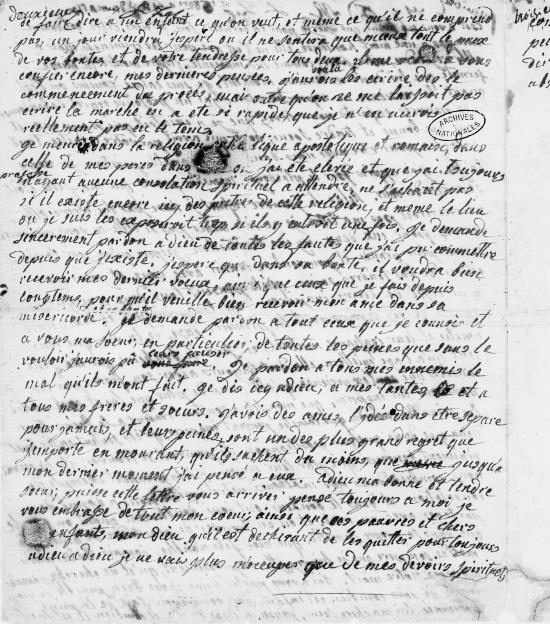 de faire dire a un enfant ce qu'on veut, et même ce qu'il ne comprend
pas, un jour viendra j'espere ou il ne sentira que mieux tout le prix
de vos bontés et de votre tendresse pour tous deux. il me reste a vous
confier encore, mes dernieres pensées, j'aurois voulu les ecrire dès le
commencement du procès, mais outre qu'on ne me laissoit pas
ecrire la marche en a été si rapide que je n'en aurois
reellement pas eu le tems.
je meurs dans la religion catholique apostolique et romaine, dans
celle de mes peres dans ou j'ai été elevée et que j'ai toujours
professée
n'ayant aucune consolation spirituel a attendre, ne sachant pas
si il existe encore ici des pretres de cette religion, et même le lieu
ou je suis les exposeroit trop si ils y entroit une fois. je demande
sincerement pardon a dieu de toutes les fautes que j'ai pu commettre
depuis que j'existe, j'espere que dans sa bonté, il voudra bien
recevoir mes dernier voeux, ainsi que ceux que je fais depuis
longtems, pour qu'il veuille bien recevoir mon ame dans sa
misericorde je demande pardon a tout ceux que je connois et
a vous ma soeur en particulier, de toutes les peines que sans le
vouloir j'aurois pu leurs causer je pardon a tous mes ennemis le
mal qu'ils m'ont fait. je dis ici adieu, a mes tantes et a
tous mes freres et soeurs, j'avois des amis, l'idée dans etre separé
pour jamais, et leurs peines sont un des plus grand regret que
j'emporte en mourant, qu'ils sachent du moins, que jusqu'a
mon dernier moment j'ai pensé a eux. Adieu ma bonne et tendre
soeur, puisse cette lettre vous arriver pensé toujours a moi je
vous embrasse de tout mon coeur, ainsi que ces pauvres et chers
enfants, mon dieu qu'il est dechirant de les quitter pour toujours
adieu adieu, je ne vais plus m'occuper que de mes devoirs spirituels
ARCHIVES
NATIONALES